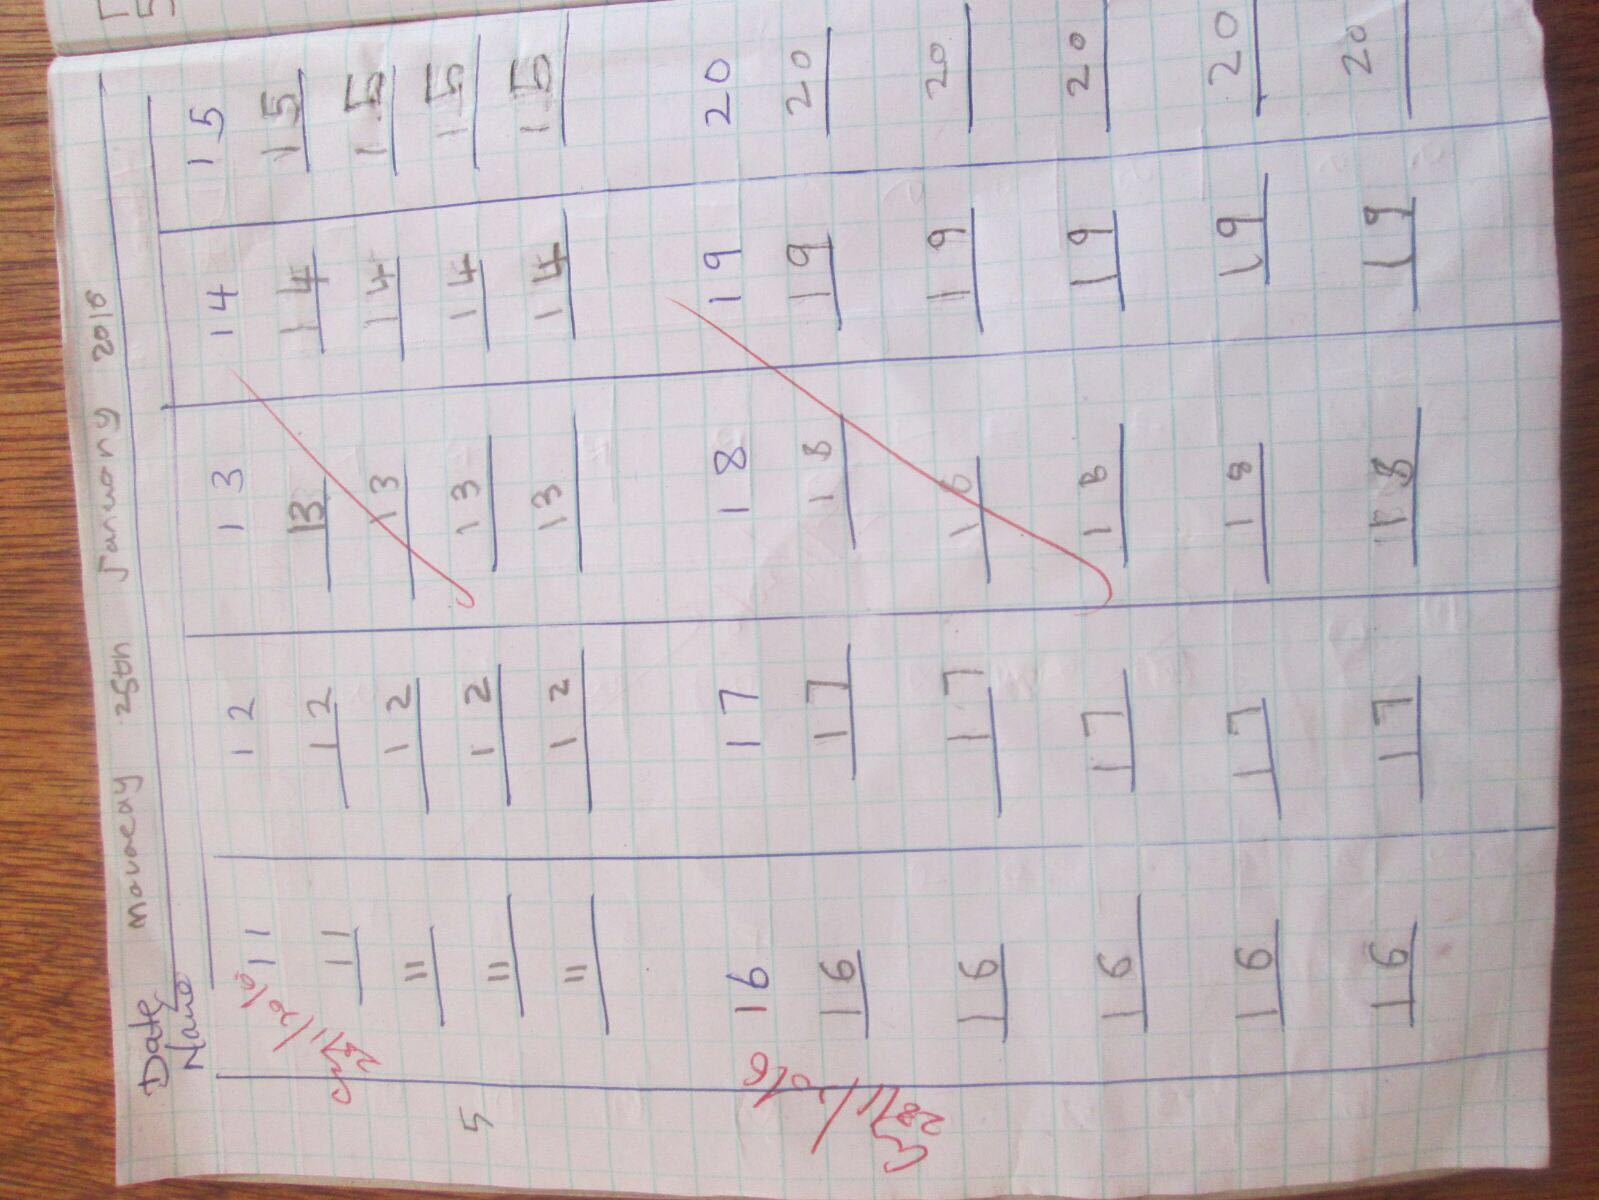 Date monday 25th January 2016
Name
11 12 13 14 15
11 12 13 14 15
11 12 13 14 15
11 12 13 14 15
11 12 13 14 15
5
16 17 18 19 20
16 17 18 19 20
16 17 18 19 20
16 17 18 19 20
16 17 18 19 20
16 17 18 19 20